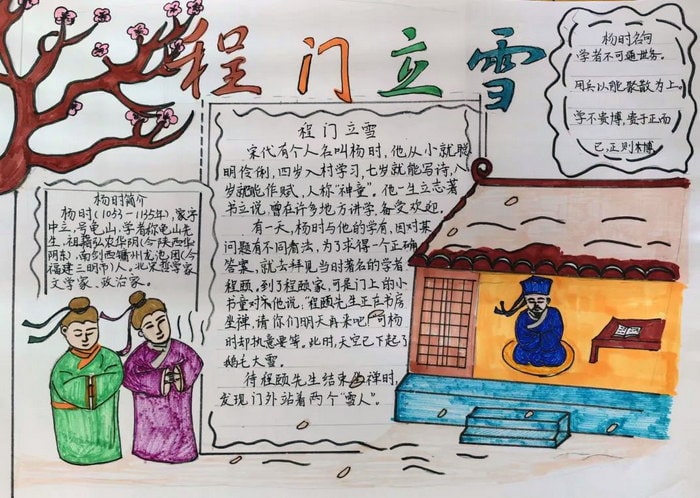 程门立雪
杨时名句
学者不可不通世务。
用兵以能聚散为上。
学不贵博,贵于正而
已,正则博
程门立雪
宋代有个人名叫杨时,他从小就聪
明伶俐,四岁入村学习,七岁就能写诗,八
岁就能作赋,人称“神童”。他一生立志著
书立说,曾在许多地方讲学,备受欢迎。
有一天,杨时与他的学友,因对某
问题有不同看法,为了求得一个正确
答案,就去拜见当时著名的学者
程颐,到了程颐家,可是门上的小
书童对他说,“程颐先生正在书房
坐禅,请你们明天再来吧”可杨
时却执意要等。此时,天空已下起了
鹅毛大雪。
待程颐先生结束坐禅时,
发现门外站着两个“雪人”。
杨时简介
杨时(1053-1135年),字
中立,号龟山,学者称龟山先
生,祖籍弘农华阴(今陕西华
阴东),南剑西镛州龙池团(今
福建三明市)人。北宋哲学家
文学家、政治家。